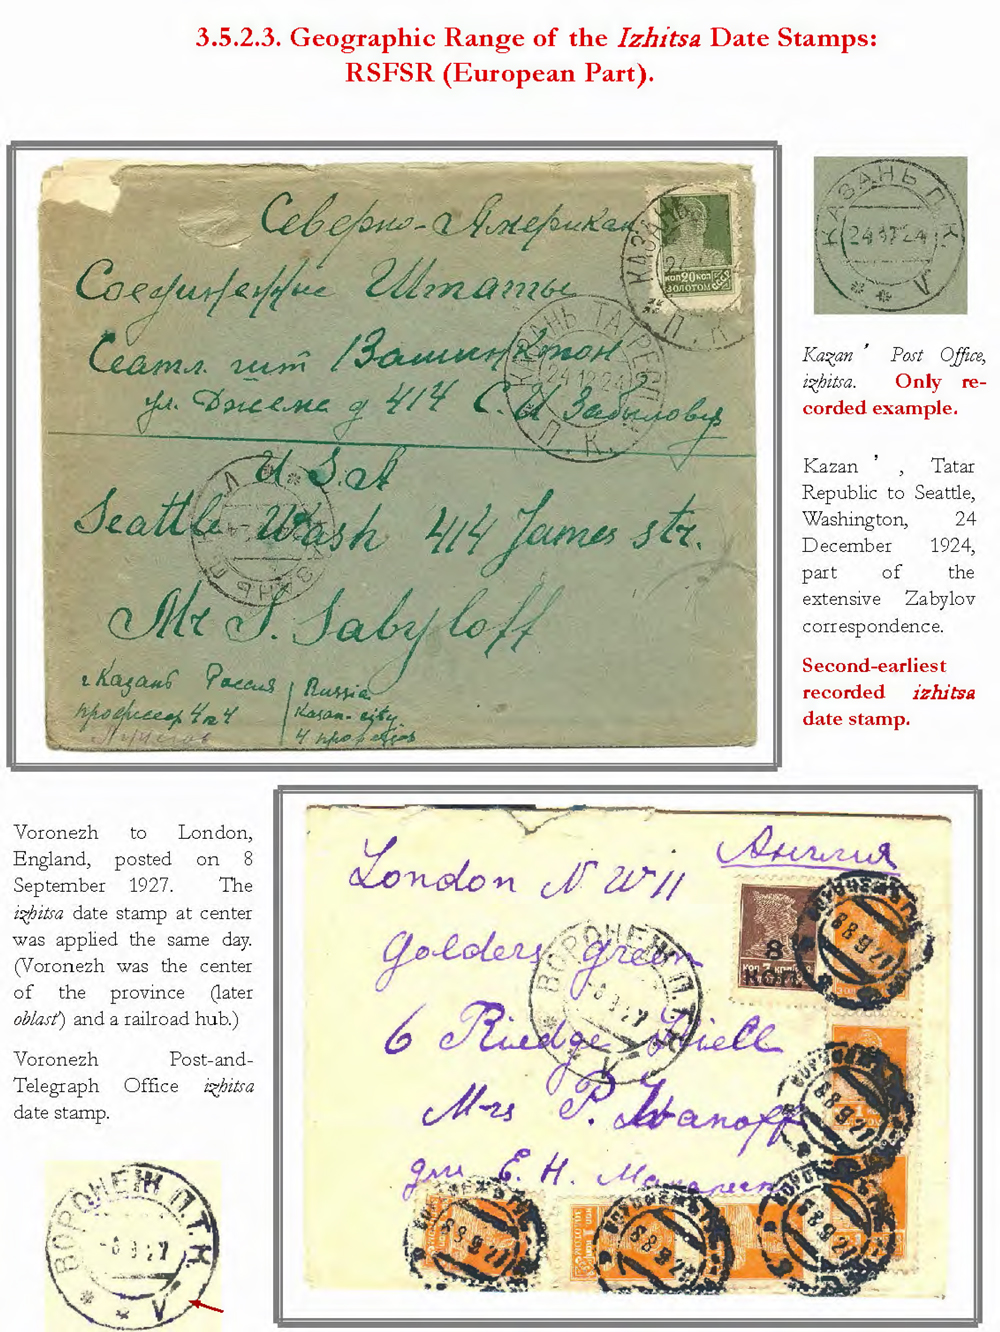 3.5.2.3. Geographic Range of the Izhitsa Date Stamps:
RSFSR (European Part).
Северно-Американ
Соединенные Штаты
Сеатл. шт Вашингтон
ул. Джемс д 414 С. И Забылову
U.S.A
Seattle Wash 414 James str.
Mr S. Sabyloff
г Казань Россия
Russia
Kazan-city
КОП 20 КОП
ЗОЛОТОМ
СССР
КАЗАНЬ
П. К.
КАЗАНЬ ТАТ. РЕСП.
24 12 24
П. К.
КАЗАНЬ П. К.
24 12 24
Kazan ’ Post Office,
izhitsa. Only re-
corded example.
Kazan ’ , Tatar
Republic to Seattle,
Washington, 24
December 1924,
part of the
extensive Zabylov
correspondence.
Second-earliest
recorded izhitsa
date stamp.
Voronezh to London,
England, posted on 8
September 1927. The
izhitsa date stamp at center
was applied the same day.
(Voronezh was the center
of the province (later
oblast’) and a railroad hub.)
Voronezh Post-and-
Telegraph Office izhitsa
date stamp.
ВОРОНЕЖ П.Т.К.
-8 9 27
V
Англия
London N W 11
Golders Green
6
Mrs P. Ivanoff
Е. Н.
ВОРОНЕЖ П.Т.К.
-8 9 27
V